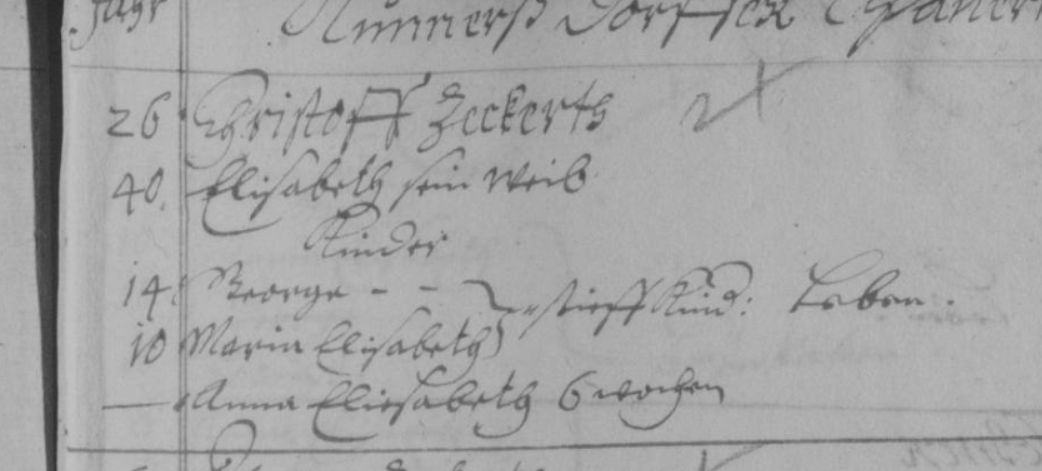 Jahr Kunnerß Dorffer
26 Christoff Zeckerth
40. Elisabeth sein Weib
Kinder
14. George - -
stieff Kind: Leben.
10 Maria Elisabeth
— Anna Eliesabeth 6 wochen